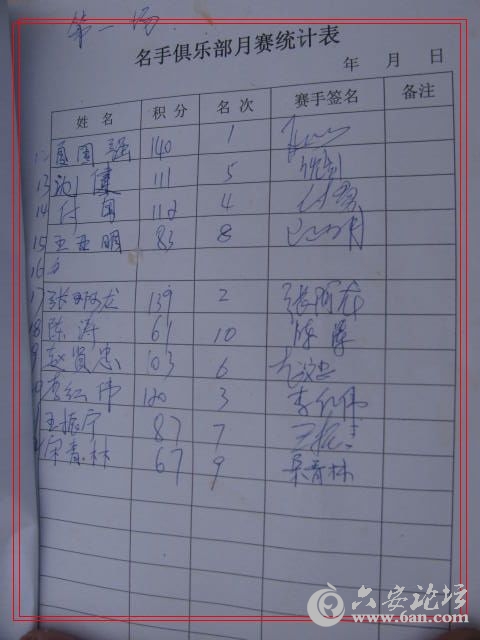 第一场
名手俱乐部月赛统计表
年 月 日
姓名 积分 名次 赛手签名 备注
12 国强 140 1
13 刘健 111 5 刘
14 付 112 4 付
15 王亚明 83 8
16
17 张明龙 139 2 张明龙
18 陈涛 61 10 陈涛
9 赵贤忠 103 6
李红伟 120 3 李红伟
王振宁 87 7 王振
宋青林 67 9 宋青林
六安论坛
www.6an.com